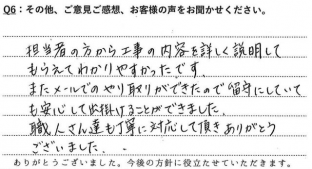 Q6：その他、ご意見ご感想、お客様の声をお聞かせください。
担当者の方から工事の内容を詳しく説明して
もらえてわかりやすかったです。
またメールでのやり取りができたので留守にしていて
も安心して出掛けることができました。
職人さん達も丁寧に対応して頂きありがとう
ございました。
ありがとうございました。今後の方針に役立たせていただきます。